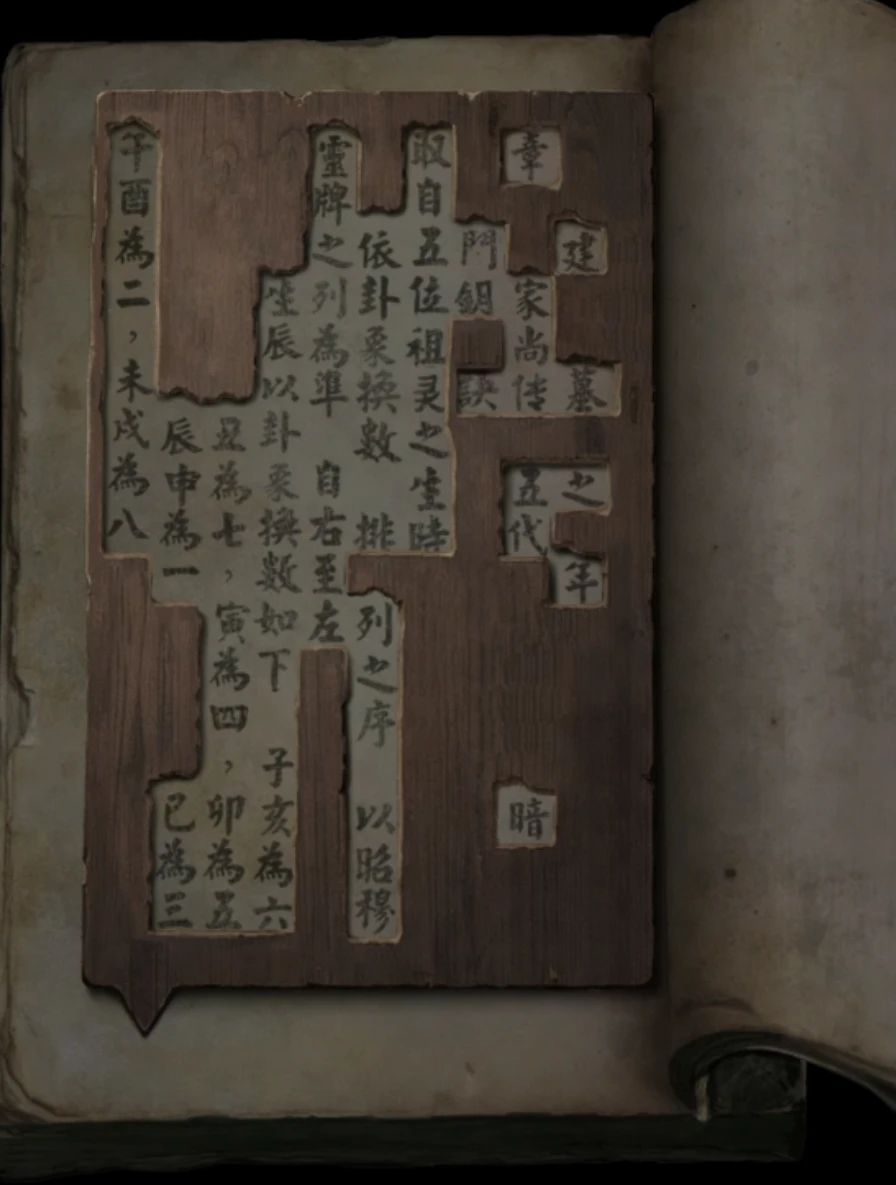 建墓之年
章家尚传五代暗
門鈅訣
取自五位祖灵之生時
依卦象換數 排列之序 以昭穆
靈牌之列為準 自右至左
生辰以卦象換數如下 子亥為六
丑為七，寅為四，卯為五
辰申為一 巳為三
午酉為二，未戌為八